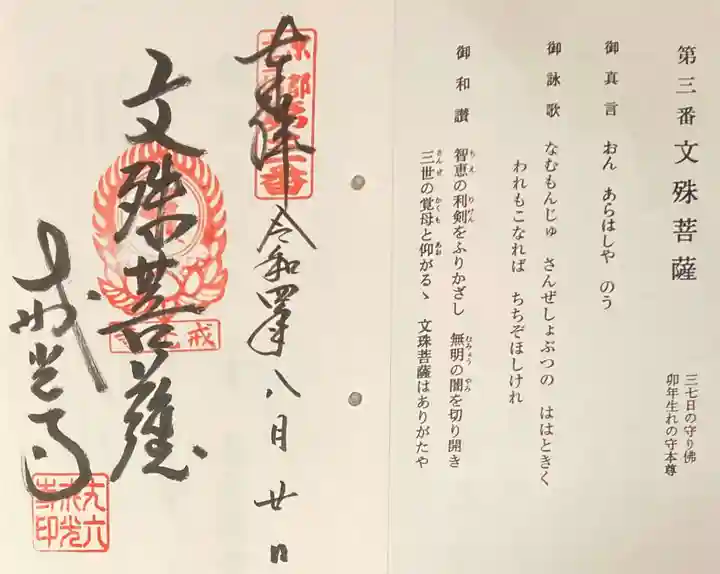 第三番文殊菩薩
三七日の守り佛
卯年生れの守本尊
御真言 おん あらはしや のう
御詠歌 なむもんじゅ さんぜしょぶつの ははときく
われもこなれば ちちぞほしけれ
御和讃 智恵の利剣をふりかざし 無明の闇を切り開き
ちえ りけん むみょう やみ
三世の覚母と仰がるゝ 文珠菩薩はありがたや
さんぜ かくも あお
奉拝 令和四年八月廿日
文殊菩薩
戒光寺